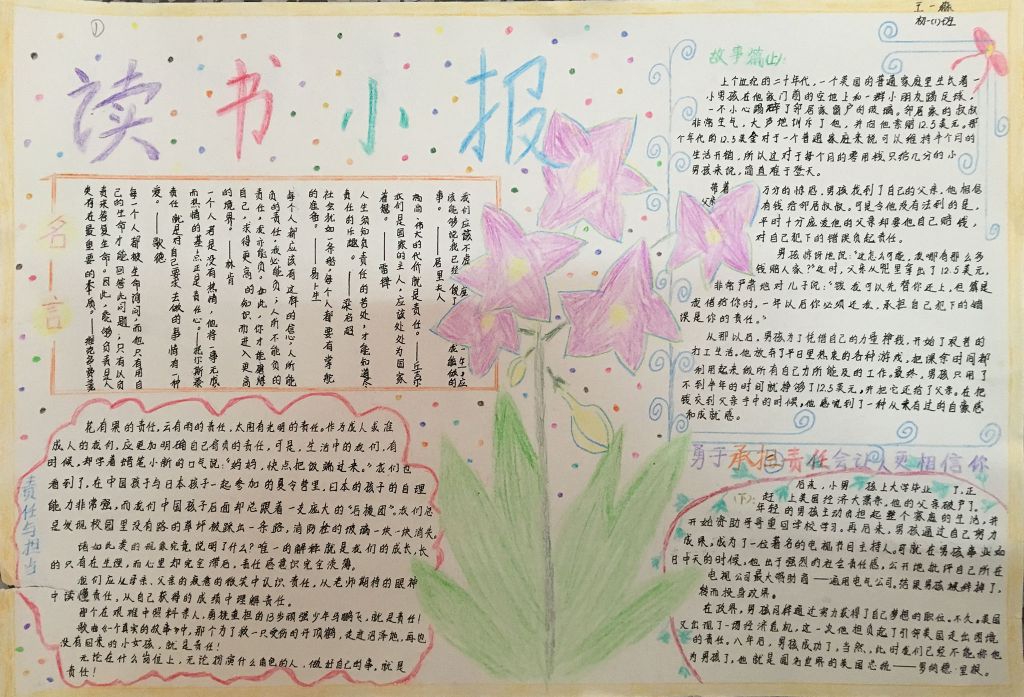 王一淼
初一(1)班
①
读书小报
名言
我们应该不虚度一生，应
该能够说我已经做了我能做的
事。——居里夫人
高尚、伟大的代价就是责任。——丘吉尔
我们是国家的主人，应该处处为国家
着想。——雷锋
人生须知负责任的苦处，才能知道尽
责任的乐趣。——梁启超
社会犹如一条船，每个人都要有掌舵
的准备。——易卜生
每个人都应该有这样的信心：人所能
负的责任，我必能负；人所不能负的
责任，我亦能负。如此，你才能磨练
自己，求得更高的知识而进入更高
的境界。——林肯
一个人若是没有热情，他将一事无成，
而热情的基点正是责任心。——托尔斯泰
责任就是对自己要求去做的事情有一种
爱。——歌德
每一个人都被生命询问，而他只有用自
己的生命才能回答此问题；只有以负
责来答复生命。因此，能够负责是人
类存在最重要的本质。——维克多费兰克
责任与担当
花有果的责任，云有雨的责任，太阳有光明的责任。作为成人或准
成人的我们，应更加明确自己肩负的责任，可是，生活中的我们，有
时候，却学着蜡笔小新的口气说："妈妈，快点把饭端过来。"我们也
看到了，在中国孩子与日本孩子一起参加的夏令营里，日本的孩子的自理
能力非常强，而我们中国孩子后面却总跟着一支庞大的"后援团"。我们总
是发现校园里没有路的草坪被踩出一条路，消防栓的玻璃一块一块消失。
诸如此类的现象究竟说明了什么？惟一的解释就是我们的成长，长
的只有在生理，而心里却完全滞后，责任感意识完全淡薄。
我们应从母亲、父亲的疲惫的微笑中认识责任，从老师期待的眼神
中读懂责任，从自己获得的成绩中理解责任。
那个在艰难中照料亲人，勇挑重担的13岁顽强少年马鹏飞，就是责任！
歌曲《一个真实的故事》中，那个为了救一只受伤的丹顶鹤，走进沼泽地，再也
没有回来的小女孩，就是责任！
无论在什么岗位上，无论扮演什么角色的人，做好自己的事，就是
责任！
故事篇(上)：
上个世纪的二十年代，一个美国的普通家庭里生长着一
小男孩在他家门前的空地上和一群小朋友踢足球，
一不小心踢碎了邻居家窗户的玻璃。邻居家的叔叔
非常生气，大声地训斥了他，并向他索赔12.5美元。那
个年代的12.5美金对于一个普通家庭来说可以维持半个月的
生活开销，所以这对于每个月的零用钱只给几分的小
男孩来说，简直难于登天。
带着万分的惊惑，男孩找到了自己的父亲，他相信
父亲有钱给邻居叔叔。可是令他没有法到的是，
平时十分疼爱他的父亲却要他自己赔钱，
对自己犯下的错误负起责任。
男孩惊讶地说："这怎么可能，我哪有那么多
钱赔人家？"这时，父亲从兜里拿出了12.5美元，
非常严肃地对儿子说："钱我可以先帮你还上，但算是
我借给你的，一年以后你必须还我，承担自己犯下的错
误是你的责任。"
从那以后，男孩为了凭借自己的力量挣钱，开始了艰苦的
打工生活，他放弃了平日里热衷的各种游戏，把课余时间都
利用起来做所有自己力所能及的工作。最终，男孩只用了
不到半年的时间就挣够了12.5美元。并把它还给了父亲。在把
钱交到父亲手中的时候，他感觉到了一种从未有过的自豪感
和成就感。
勇于承担责任会让人更相信你
(下)：
后来，小男孩上大学毕业了，正
赶上美国经济大萧条，他的父亲破产了。
年轻的男孩主动负担起整个家庭的生活，并
开始资助哥哥重回学校学习。再后来，男孩通过自己努力
成果，成为了一位著名的电视节目主持人。可就在男孩事业如
日中天的时候，他出于强烈的社会责任感，公开地批评自己所在
电视公司最大赞助商——通用电气公司。结果男孩被辞掉了，
转而投身政界。
在政界，男孩同样通过实力获得了自己梦想的职位。不久，美国
又出现了一场经济危机，这一次他担负起了引领美国走出困境
的责任。八年后，男孩成功了，当然，此时我们已经不能称他
为男孩了，他就是闻名世界的美国总统——罗纳德·里根。